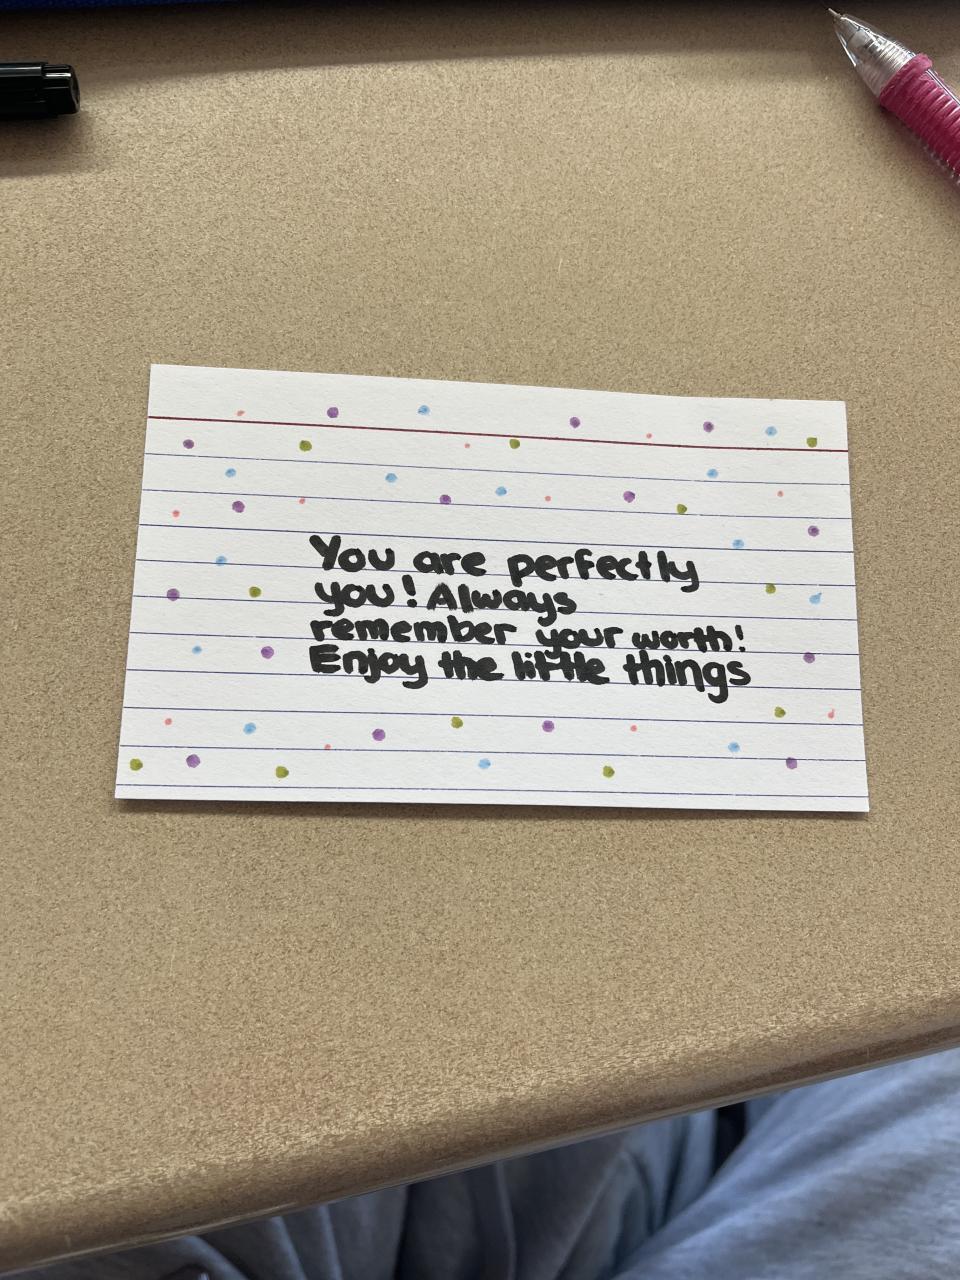 You are perfectly
you! Always
remember your worth!
Enjoy the little things